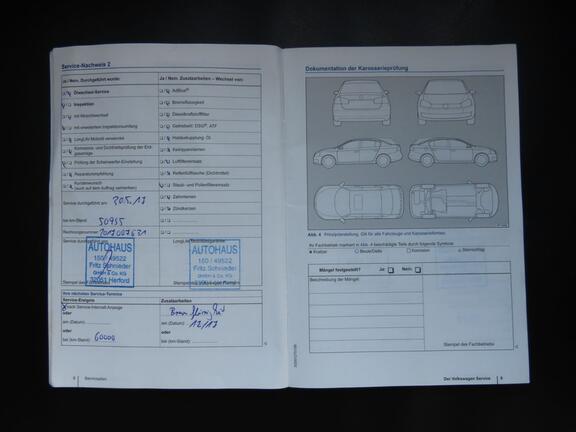 Service-Nachweis 2
Ja / Nein, Durchgeführt wurde:
Ölwechsel-Service
Inspektion
mit Motorölwechsel
mit erweitertem Inspektionsumfang
LongLife Motoröl verwendet
Korrosions- und Dichtheitsprüfung der Erdgasanlage
Prüfung der Scheinwerfer-Einstellung
Reparaturempfehlung
Kundenwunsch
(auch auf dem Auftrag vermerken)
Service durchgeführt am: 20.5.17
bei km-Stand: 50955
Rechnungsnummer:
Service durchgeführt von:
AUTOHAUS
150 / 49522
Fritz Schnieder
GmbH & Co. KG
32051 Herford
Ja / Nein, Zusatzarbeiten – Wechsel von:
AdBlue®
Bremsflüssigkeit
Dieselkraftstofffilter
Getriebeöl: DSG®, ATF
Haldexkupplung: Öl
Keilrippenriemen
Luftfiltereinsatz
Reifenfüllflasche (Dichtmittel)
Staub- und Pollenfiltereinsatz
Zahnriemen
Zündkerzen
AUTOHAUS
150 / 49522
Fritz Schnieder
GmbH & Co. KG
Ihre nächsten Service-Termine
Service-Ereignis
nach Service-Intervall-Anzeige
oder
am (Datum):
oder
bei (km-Stand): 60000
Zusatzarbeiten
am (Datum): 12/17
oder
bei (km-Stand):
8 Serviceplan
Dokumentation der Karosserieprüfung
Abb. 4 Prinzipdarstellung. Gilt für alle Fahrzeuge und Karosserieformen.
Ihr Fachbetrieb markiert in Abb. 4 beschädigte Teile durch folgende Symbole:
Kratzer Beule/Delle Korrosion Steinschlag
Mängel festgestellt? Ja: Nein:
Beschreibung der Mängel:
Stempel des Fachbetriebs
Der Volkswagen Service 9